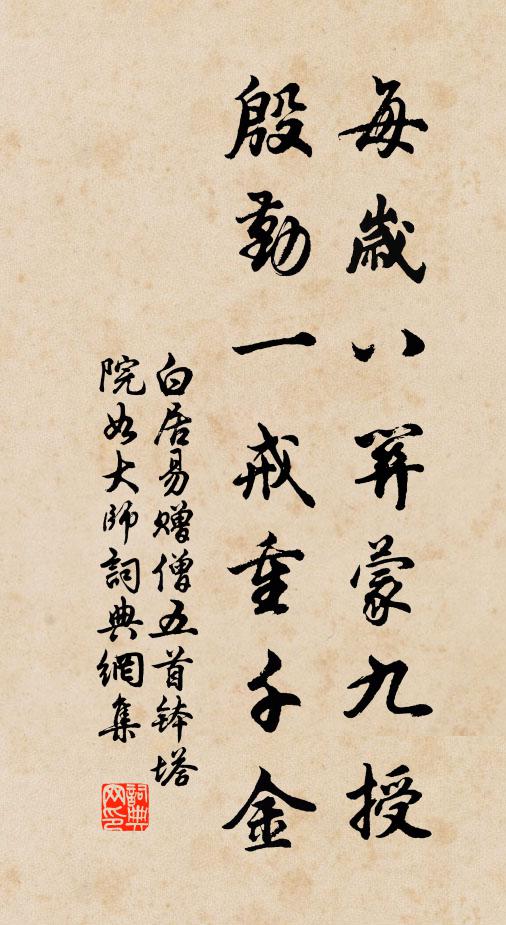 每歲八關蒙九授
殷勤一戒重千金
白居易贈僧五首缽塔
院如大師詞典網集
詞典
网印